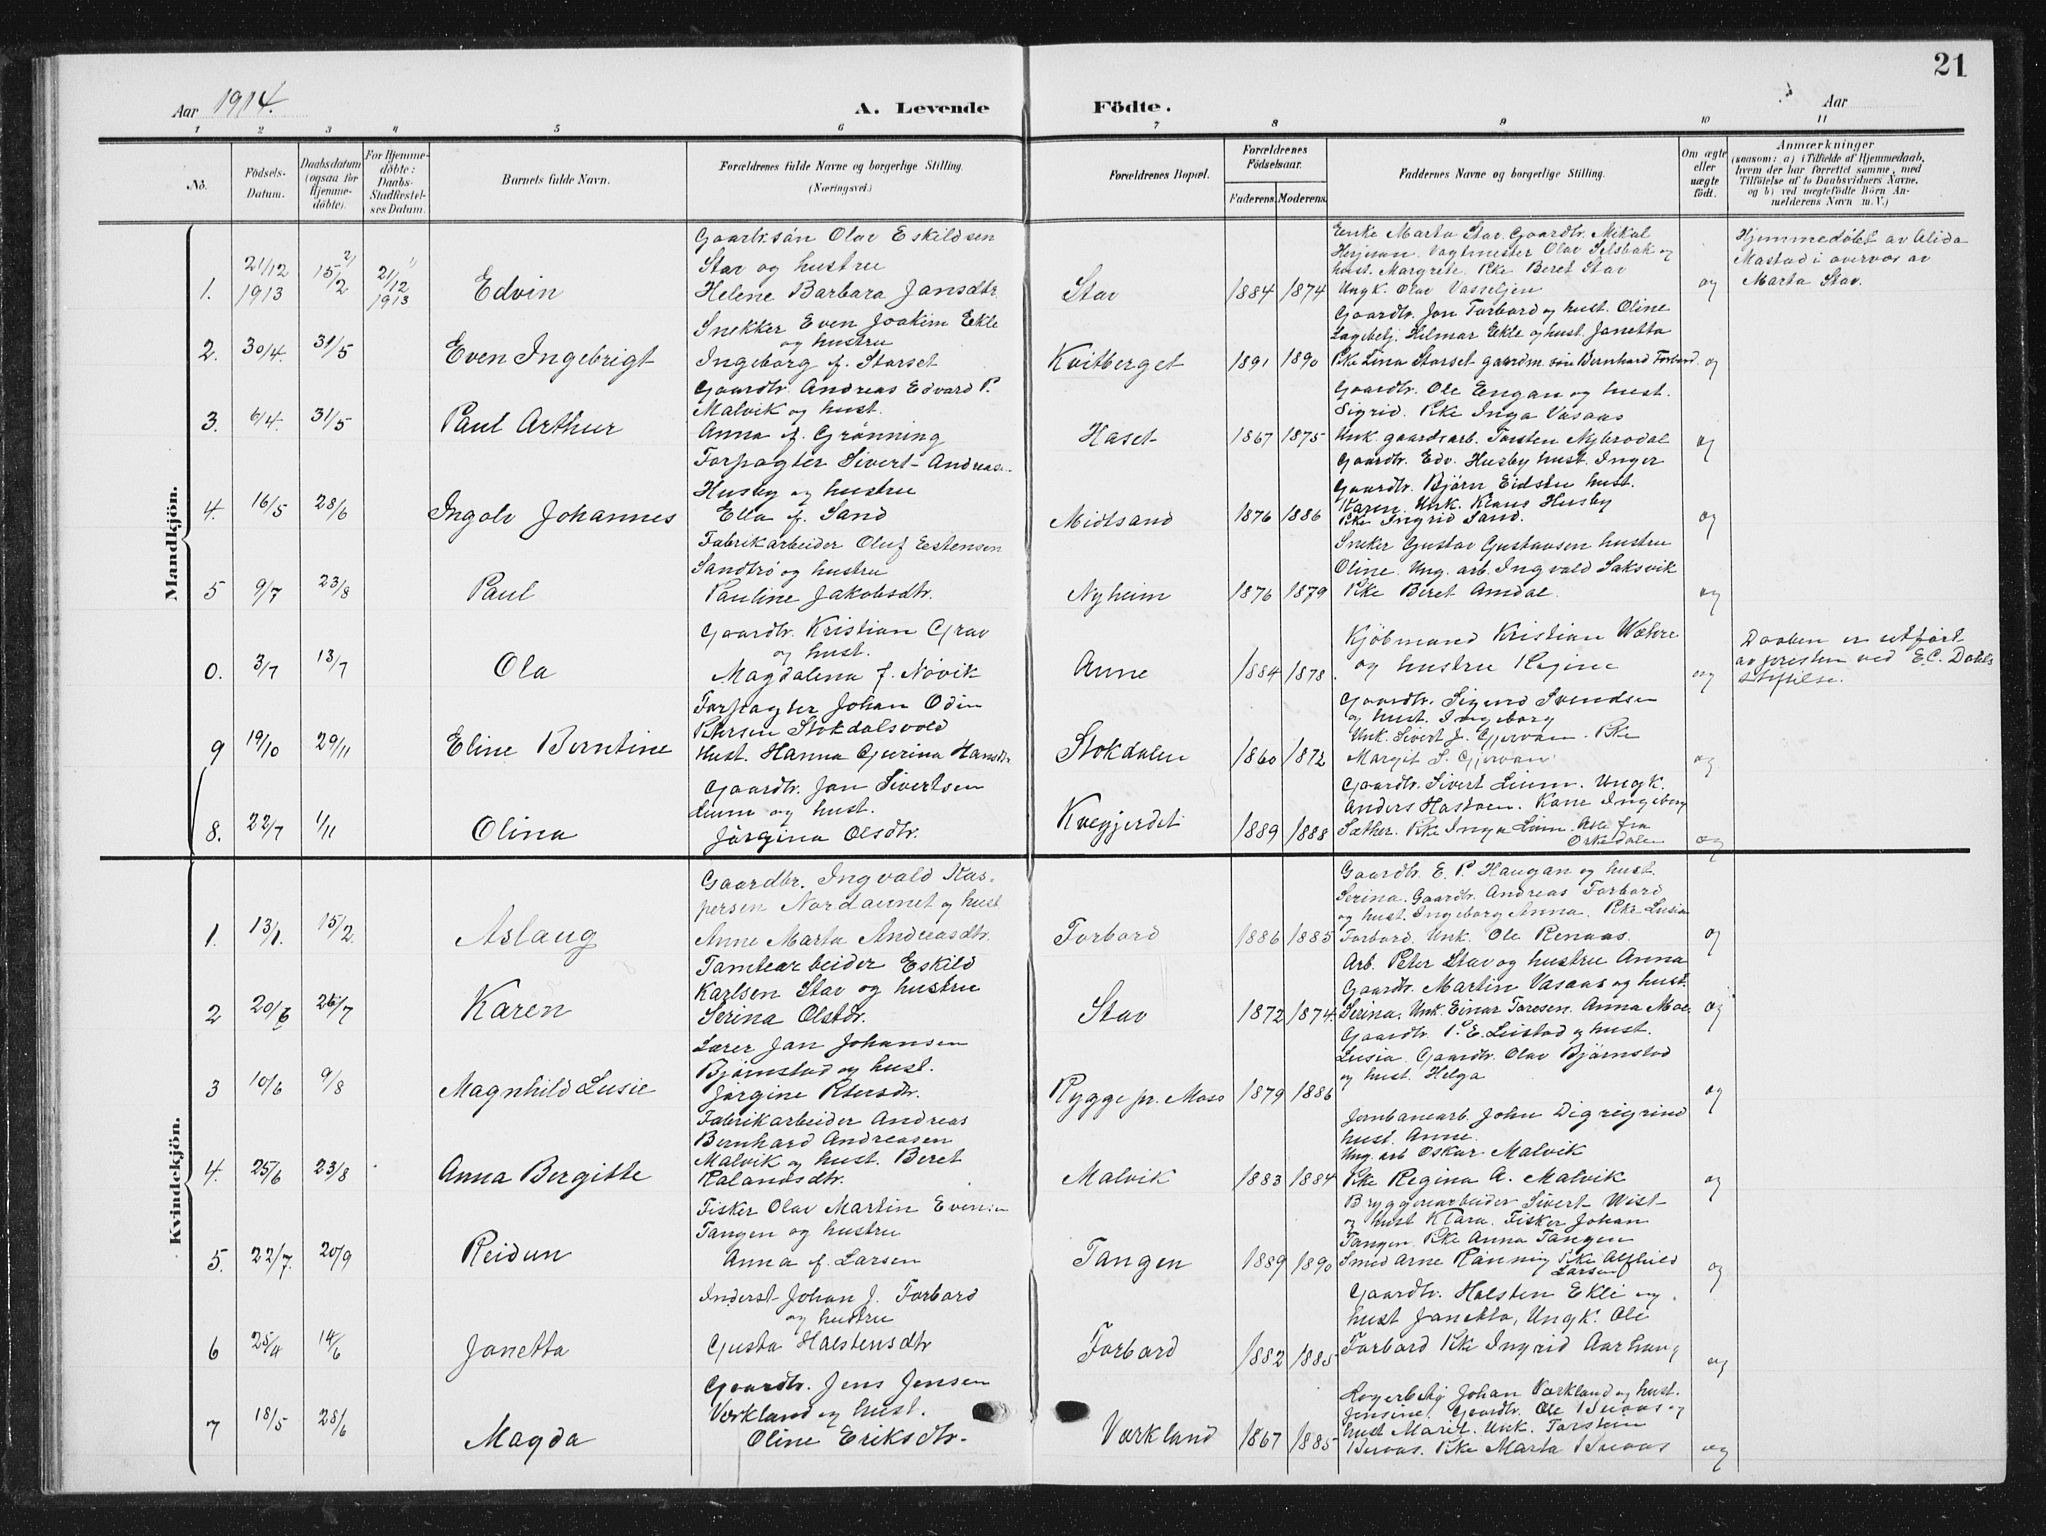 21
Aar 1914.
A. Levende Födte.
Aar
1 2 3 4 5 6 7 8 9 10 11
No.
Födsels-Datum.
Daabsdatum (ogsaa for Hjemme-döbte).
For Hjemme-döbte: Daabs-Stadfestel-ses Datum.
Barnets fulde Navn.
Forældrenes fulde Navne og borgerlige Stilling. (Næringsvei.)
Forældrenes Bopæl.
Forældrenes Födselsaar.
Faderens. Moderens.
Faddernes Navne og borgerlige Stilling.
Om ægte eller uægte födt.
Anmærkninger
(saasom: a) i Tilfælde af Hjemmedaab, hvem der har forrettet samme, med Tilföielse af to Daabsvidners Navne, og b) ved uægtefödte Börn An-melderens Navn m. V.)
Mandkjön.
1. 21/12 1913 15/2 21/12 1913 Edvin
Gaardsøn Olav Eskildsen
Stav og hustru
Helene Barbara Jansdtr.
Stav 1884 1874
Enke Marta Stav Gaardbr. Mikal
Vagtmester Olav Selsbak og
hust. Margrete. Pke Beret Stav
Ungk. Olav Vasseljen
og
Hjemmedøbt av Alida
Mastad i overvær av
Marta Stav.
2. 30/4. 31/5 Even Ingebrigt
Snekker Even Joakim Ekle
og hustru
Ingeborg f. Storset
Kvitberget 1891 1890
Gaardbr. Jon Forbord og hust. Oline
Hilmar Ekle og hust. Janetta
Pke Lina Storset gaardm. søn Bernhard Forbord
og
3. 6/4. 31/5 Paul Arthur
Gaardbr. Andreas Edvard P.
Malvik og hust.
Anna f. Grønning
Haset 1867 1875
Gaardbr. Ole Engan og hust.
Sigrid. Pke Inga Vasaas
Unk. gaardsarb. Torsten Nybrodal
og
4. 16/5 28/6 Ingolv Johannes
Forpagter Sivert Andreas
Husby og hustru
Ella f. Sand
Midtsand 1876 1886
Gaardbr. Edv. Husby hust. Inger
Gaardbr. Bjørn Eidstu hust.
Karen. Unk. Klaus Husby
Pke Ingrid Sand.
og
5 9/7 23/8 Paul
Fabrikarbeider Oluf Estensen
Sandtrø og hustru
Pauline Jakobsdtr.
Nyheim 1876 1879
Sneker Gustav Gustavsen hustru
Oline. Ung. arb. Ingvald Saksvik
Pke Beret Amdal.
og
0. 3/7 13/7 Ola
Gaardbr. Kristian Grav
og hust.
Magdalena f. Nøvik
Anne 1884 1878
Kjøbmand Kristian
og hustru Regine
og
Daaben er utført
av presten ved E.C. Dahls
stiftelse.
9 19/10 29/11 Eline Berntine
Forpagter Johan Odin
Petersen Stokdalsvold
Hust. Hanna Gurina Hansdtr.
Stokdalen 1860 1872
Gaardbr. Sigurd Svendsen
og hust. Ingeborg
Unk. Sivert J. Gjervan. Pke
Margit S. Gjervan
og
8. 22/7 1/11 Olina
Gaardbr. Jon Sivertsen
Leium og hust.
Jørgina Olsdtr.
Kvegjerdet 1889 1888
Gaardbr. Sivert Leium. Ungk.
Anders Hastoen. Kone Ingeborg
Sæther. Pke Inga Leium. Alle fra
Orkedalen
og
Kvindekjön.
1. 13/1. 15/2. Aslaug
Gaardbr. Ingvald Kas-
persen Nordaunet og hust
Anne Marta Andreasdtr.
Forbord 1886 1885
Gaardbr. E. P. Haugan og hust.
Serina. Gaardbr. Andreas Forbord
og hust. Ingeborg Anna. Pke Lusia
Forbord. Unk. Ole Renaas.
og
2 20/6 26/7 Karen
Tomtearbeider Eskild
Karlsen Stav og hustru
Serina Olsdtr.
Stav 1872 1874
Arb. Peter Stav og hustru Anna
Gaardbr. Martin Vasaas og hust.
Serina. Unk. Einar Toresen. Anna Moe
og
3 10/6 9/8 Magnhild Lusie
Lærer Jan Johansen
Bjørnstad og hust.
Jørgine Petersdtr.
Rygge pr. Moss 1879 1886
Gaardbr. P. E. Leistad og hust.
Lusia. Gaardbr. Olav Bjørnstad
og hust. Helga
og
4. 25/6 23/8 Anna Bergitte
Fabrikarbeider Andreas
Bernhard Andreasen
Malvik og hust. Beret
Ralandsdtr.
Malvik 1883 1884
Jernbanearb. John Digregrind
hust. Anne.
Ung. arb Oskar Malvik
Pke Regina A. Malvik
og
5. 22/7. 20/9 Reidun
Fisker Olav Martin Evensen
Tangen og hustru
Anna f. Larsen
Tangen 1889 1890
Bryggeriarbeider Sivert Wist
og hust Klara. Fisker Johan
Tangen. Pke Anna Tangen
Smed Arne Rønning Pke Alfhild
Larsen
og
6 25/4 14/6 Janetta
Inderst Johan J. Forbord
og hustru
Gusta Halstensdtr
Forbord 1882 1885
Gaardbr. Halsten Ekle og
hust Janetta, Ungk. Ole
Forbord Pke Ingrid Aarhaug
og
7 18/5 28/6 Magda
Gaardbr. Jens Jensen
Verkland og hust.
Oline Eriksdtr.
Verkland 1867 1885
Johan Verkland og hust.
Jensine. Gaardbr. Ole Buaas og
hust Marit. Unk. Torstein
Buaas. Pke Marta Buaas
og